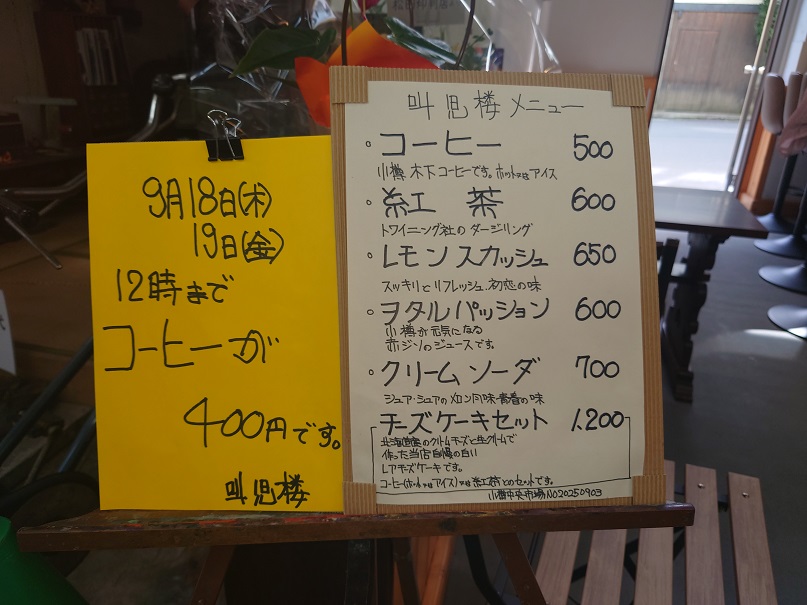 9月18日(木)
19日(金)
12時まで
コーヒーが
400円です。
叫児楼
叫児楼メニュー
・コーヒー 500
小樽 木下コーヒーです。ホット又はアイス
・紅茶 600
トワイニング社のダージリング
・レモンスカッシュ 650
スッキリとリフレッシュ、初恋の味
・ヲタルパッション 600
小樽が元気になる
赤ジソのジュースです。
・クリームソーダ 700
シュア・シュアのメロン風味・青春の味
チーズケーキセット 1,200
北海道産のクリームチーズと生クリームで
作った当店自慢の白い
レアチーズケーキです。
コーヒー(ホット又はアイス)又は紅茶とのセットです。
小樽中央市場NO20250903